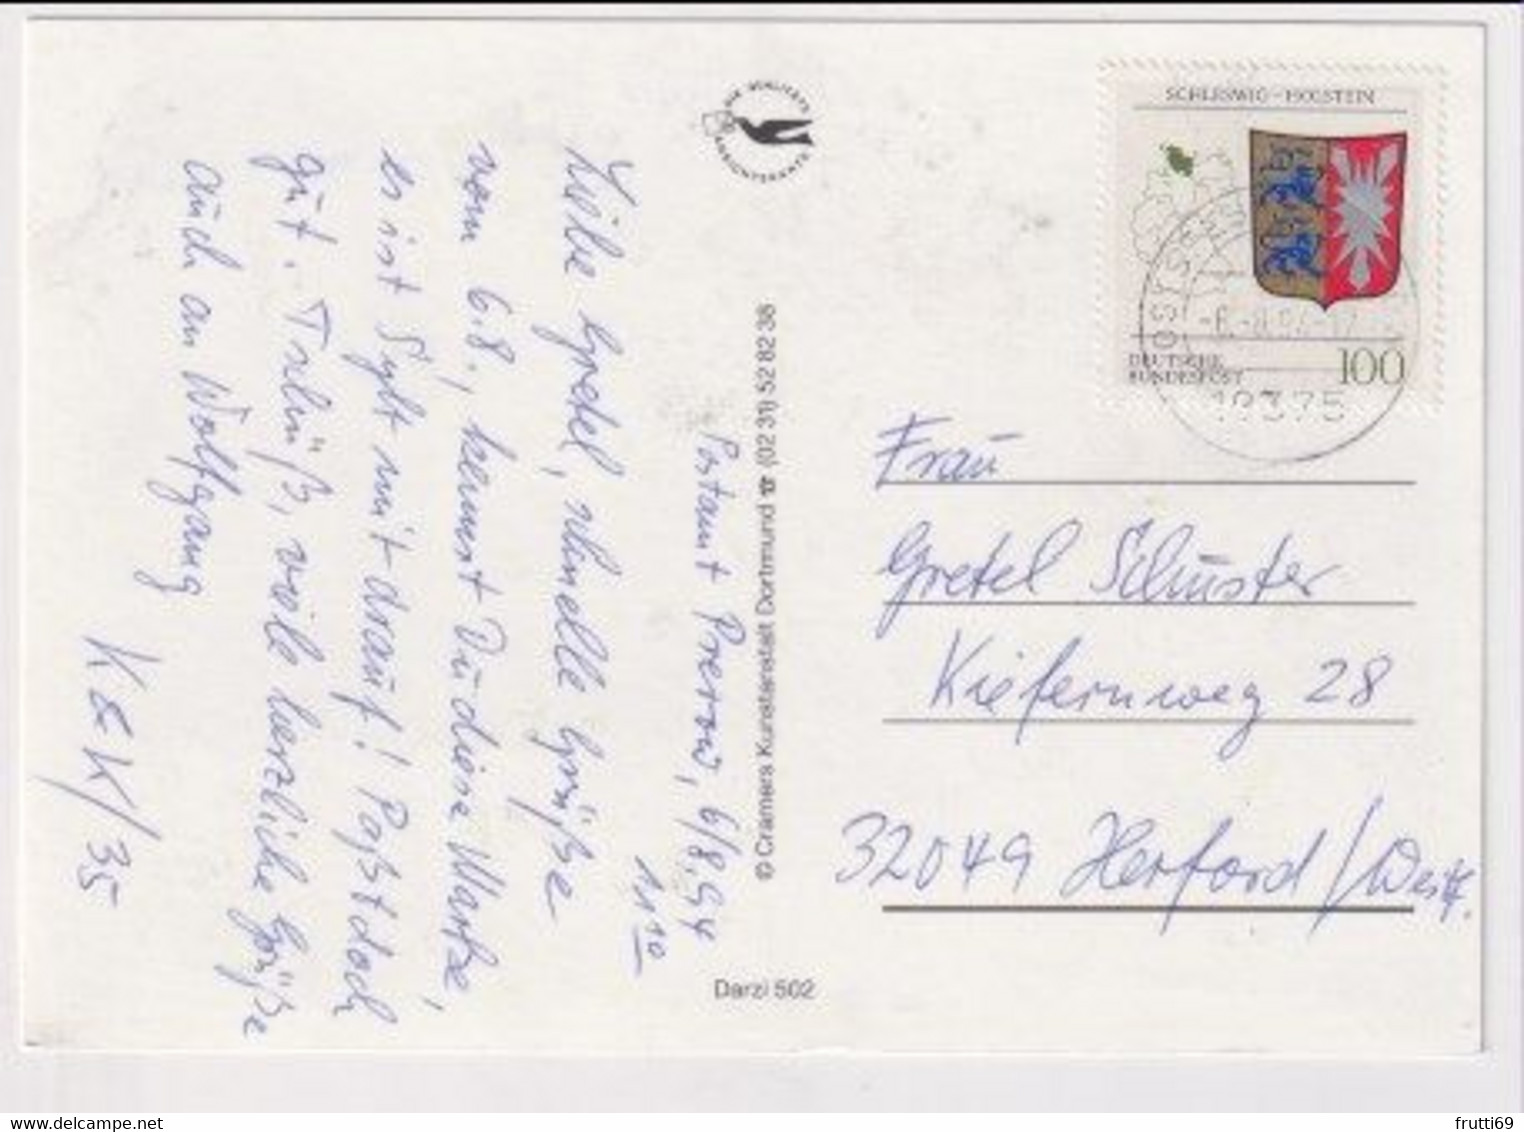 Postamt Prerow, 6/8.94
11 10
Liebe Gretel, schnelle Grüße
vom 6.8., kennst Du diese Marke,
es ist Sylt mit drauf! Paßt doch
gut. Tschüß, viele herzliche Grüße
auch an Wolfgang
K & K/35
DIE BELIEBTE
ANSICHTSKARTE
© Cramers Kunstanstalt Dortmund ☎ (02 31) 52 82 38
Darzi 502
SCHLESWIG-HOLSTEIN
DEUTSCHE
BUNDESPOST
100
18375
Frau
Gretel Schuster
Kiefernweg 28
32049 Herford/Westf.
frutti69